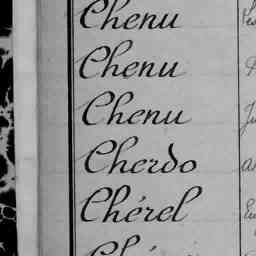 Chenu
Chenu
Chenu
Cherdo
Chérel